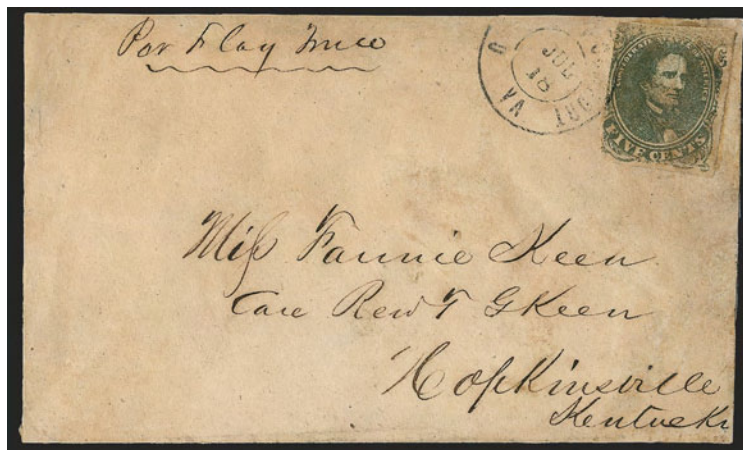 Par Flag Truce
JUL
18
VA
FIVE CENTS
Miss Fannie Keen
Care Rev T G Keen
Hopkinsville
Kentucky